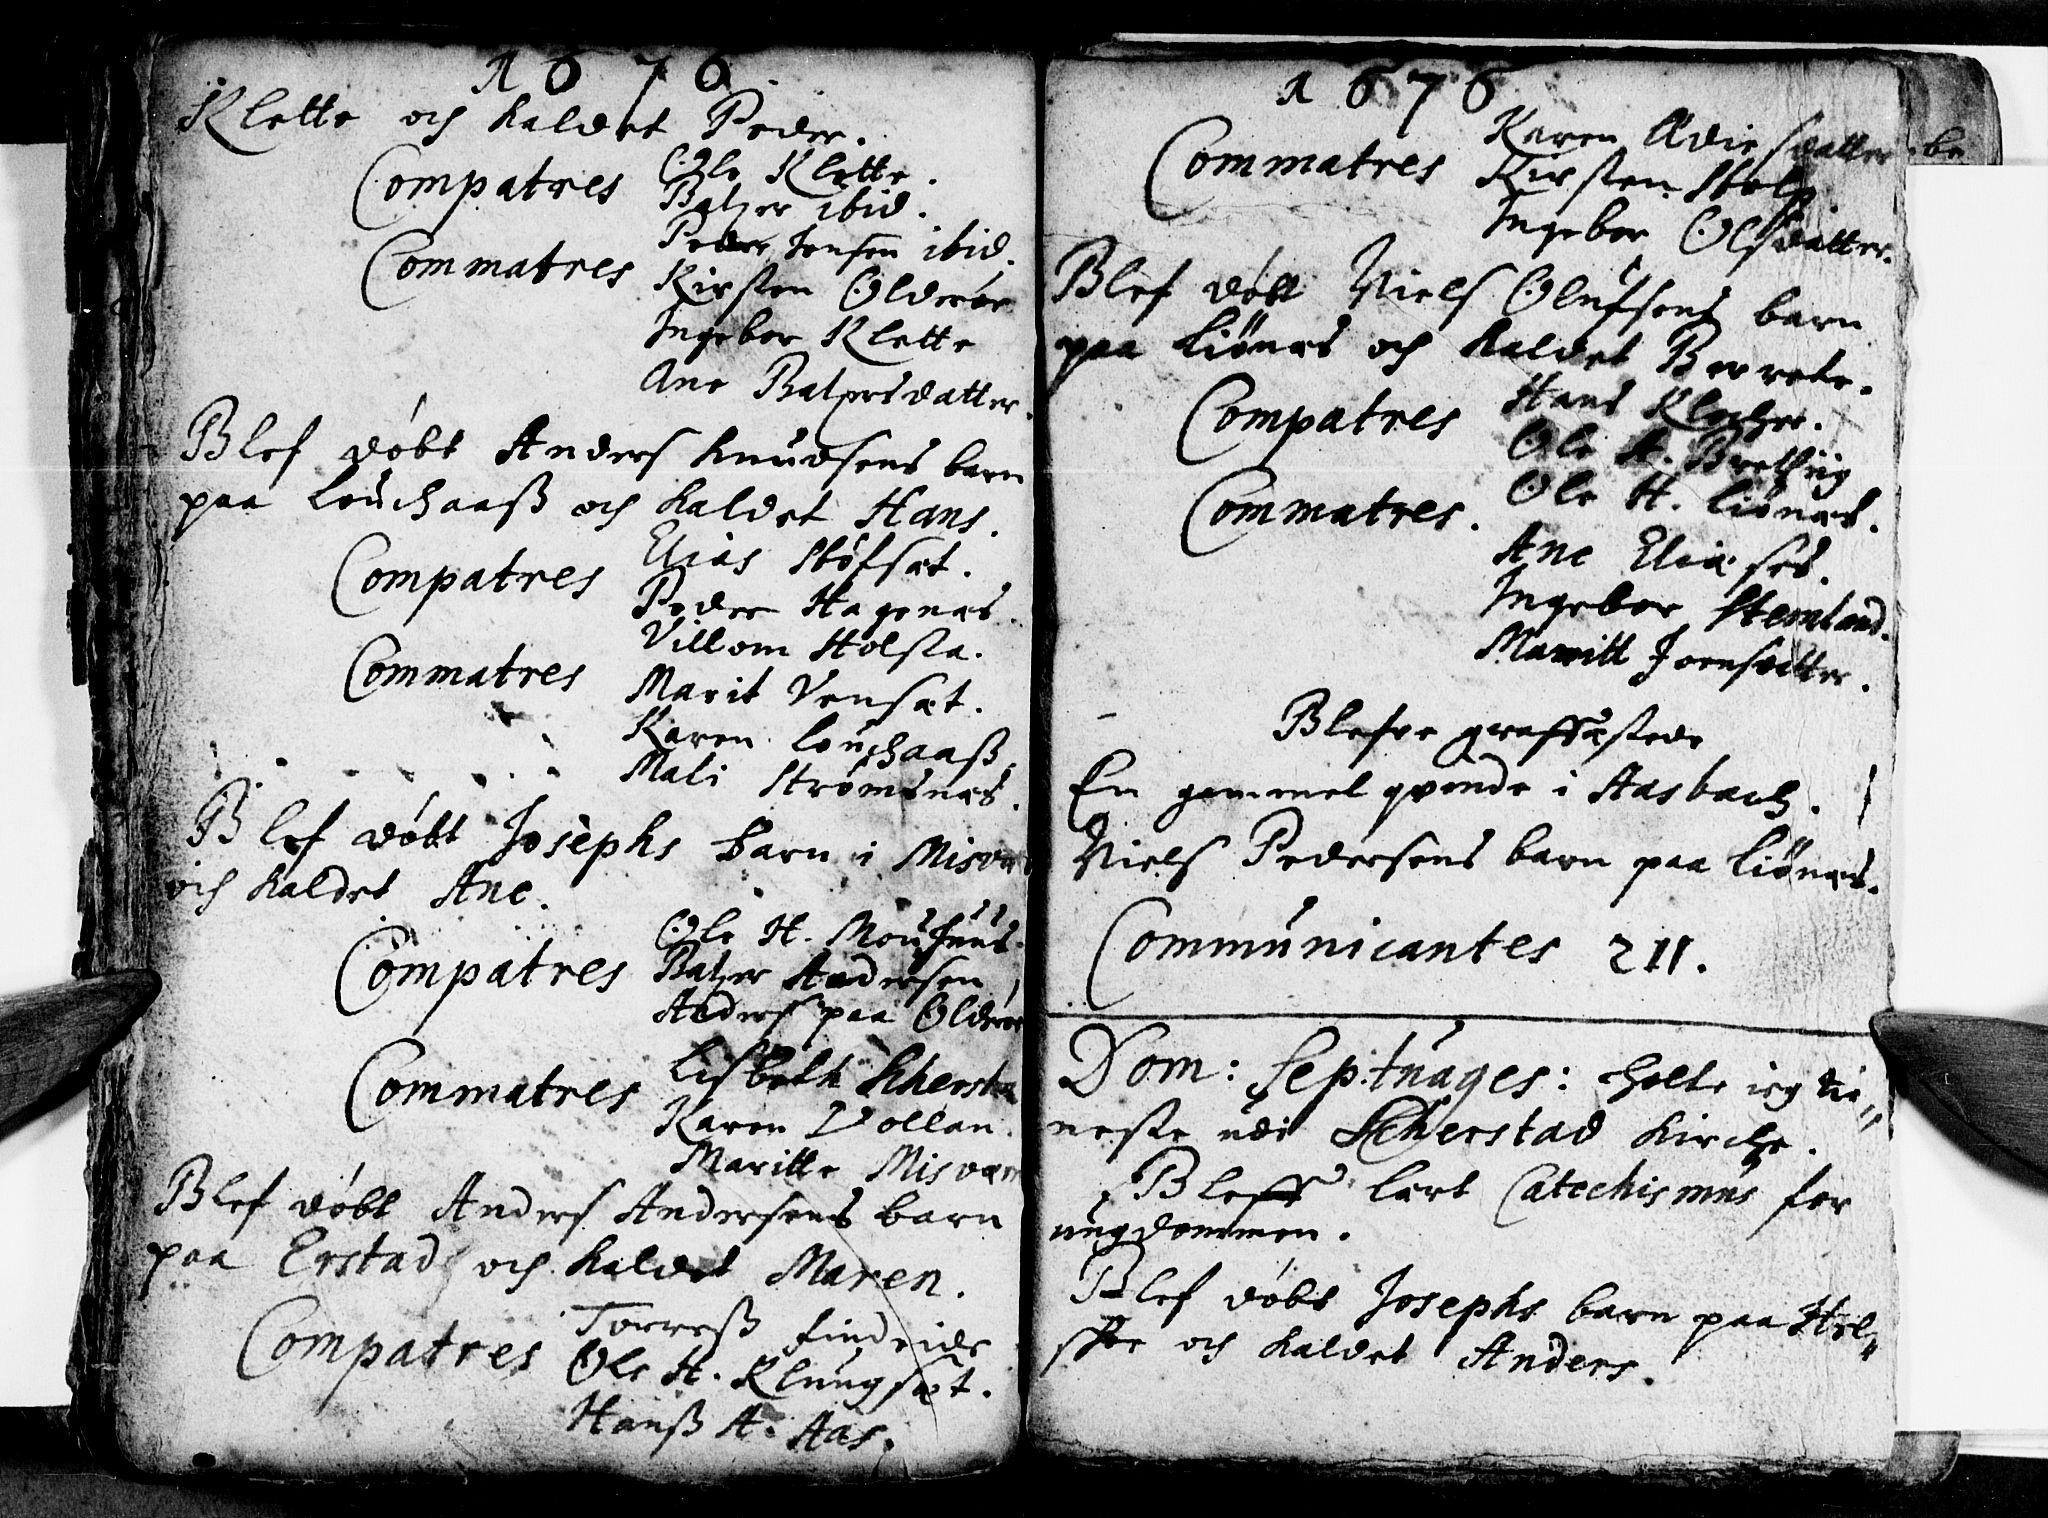 1676
Klette och kaldet Peder.
Compatres Ole Klette.
Baltzer ibid.
Peder Jensen ibid.
Commatres Kirsten Olderøe
Ingebor Klette
Ane Baltzersdatter.
Blef døbt Anders Knudsens barn
paa Louchaaß och kaldet Hans.
Compatres Elias Støfsæt.
Peder Hagenæs.
Villom Holsta.
Commatres Marit Vensæt.
Karen Louchaaß
Mali Strømsnæs.
Blef døbt Josephs barn i Misvær
och kaldet Ane.
Compatres Ole H.
Baltzer Andersen
Anders paa Olderøe
Commatres Lisbeth Scherstad
Karen Vollan.
Maritte Misvær
Blef døbt Anders Andersens barn
paa Erstad och kaldet Maren.
Compatres Torreß Findeide
Ole H. Klungsæt.
Hanß A. Aas.
1676
Commatres Karen
Kirsten
Ingebor Olsdatter.
Blef døbt Niels Olufsens barn
paa Liønæs och kaldet Berrete.
Compatres Hans Klocher.
Ole H.
Ole H. Liønæs.
Commatres. Ane Eliæses.
Ingebor Stemland.
Maritt Joensdatter.
Blefve graffæstede
En gammel qvinde i Aasbach.
Niels Pedersens barn paa Liønæs.
Communicantes 211.
Dom: Septuages: holte ieg tie„
neste udi Scherstad Kirche.
Bleff lært Catechismus for
ungdommen.
Blef døbt Josephs barn paa Hel„
och kaldet Anders.